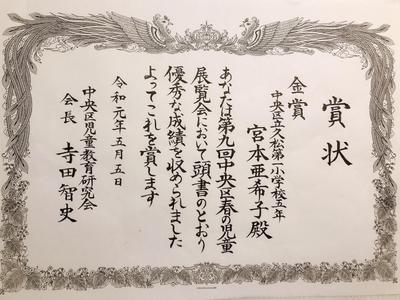 賞状
金賞
中央区立久松第一小学校五年
宮本亜希子殿
あなたは第九回中央区春の児童
展覧会において頭書のとおり
優秀な成績を収められました
よってこれを賞します
令和元年五月五日
中央区児童教育研究会
会長 寺田智史